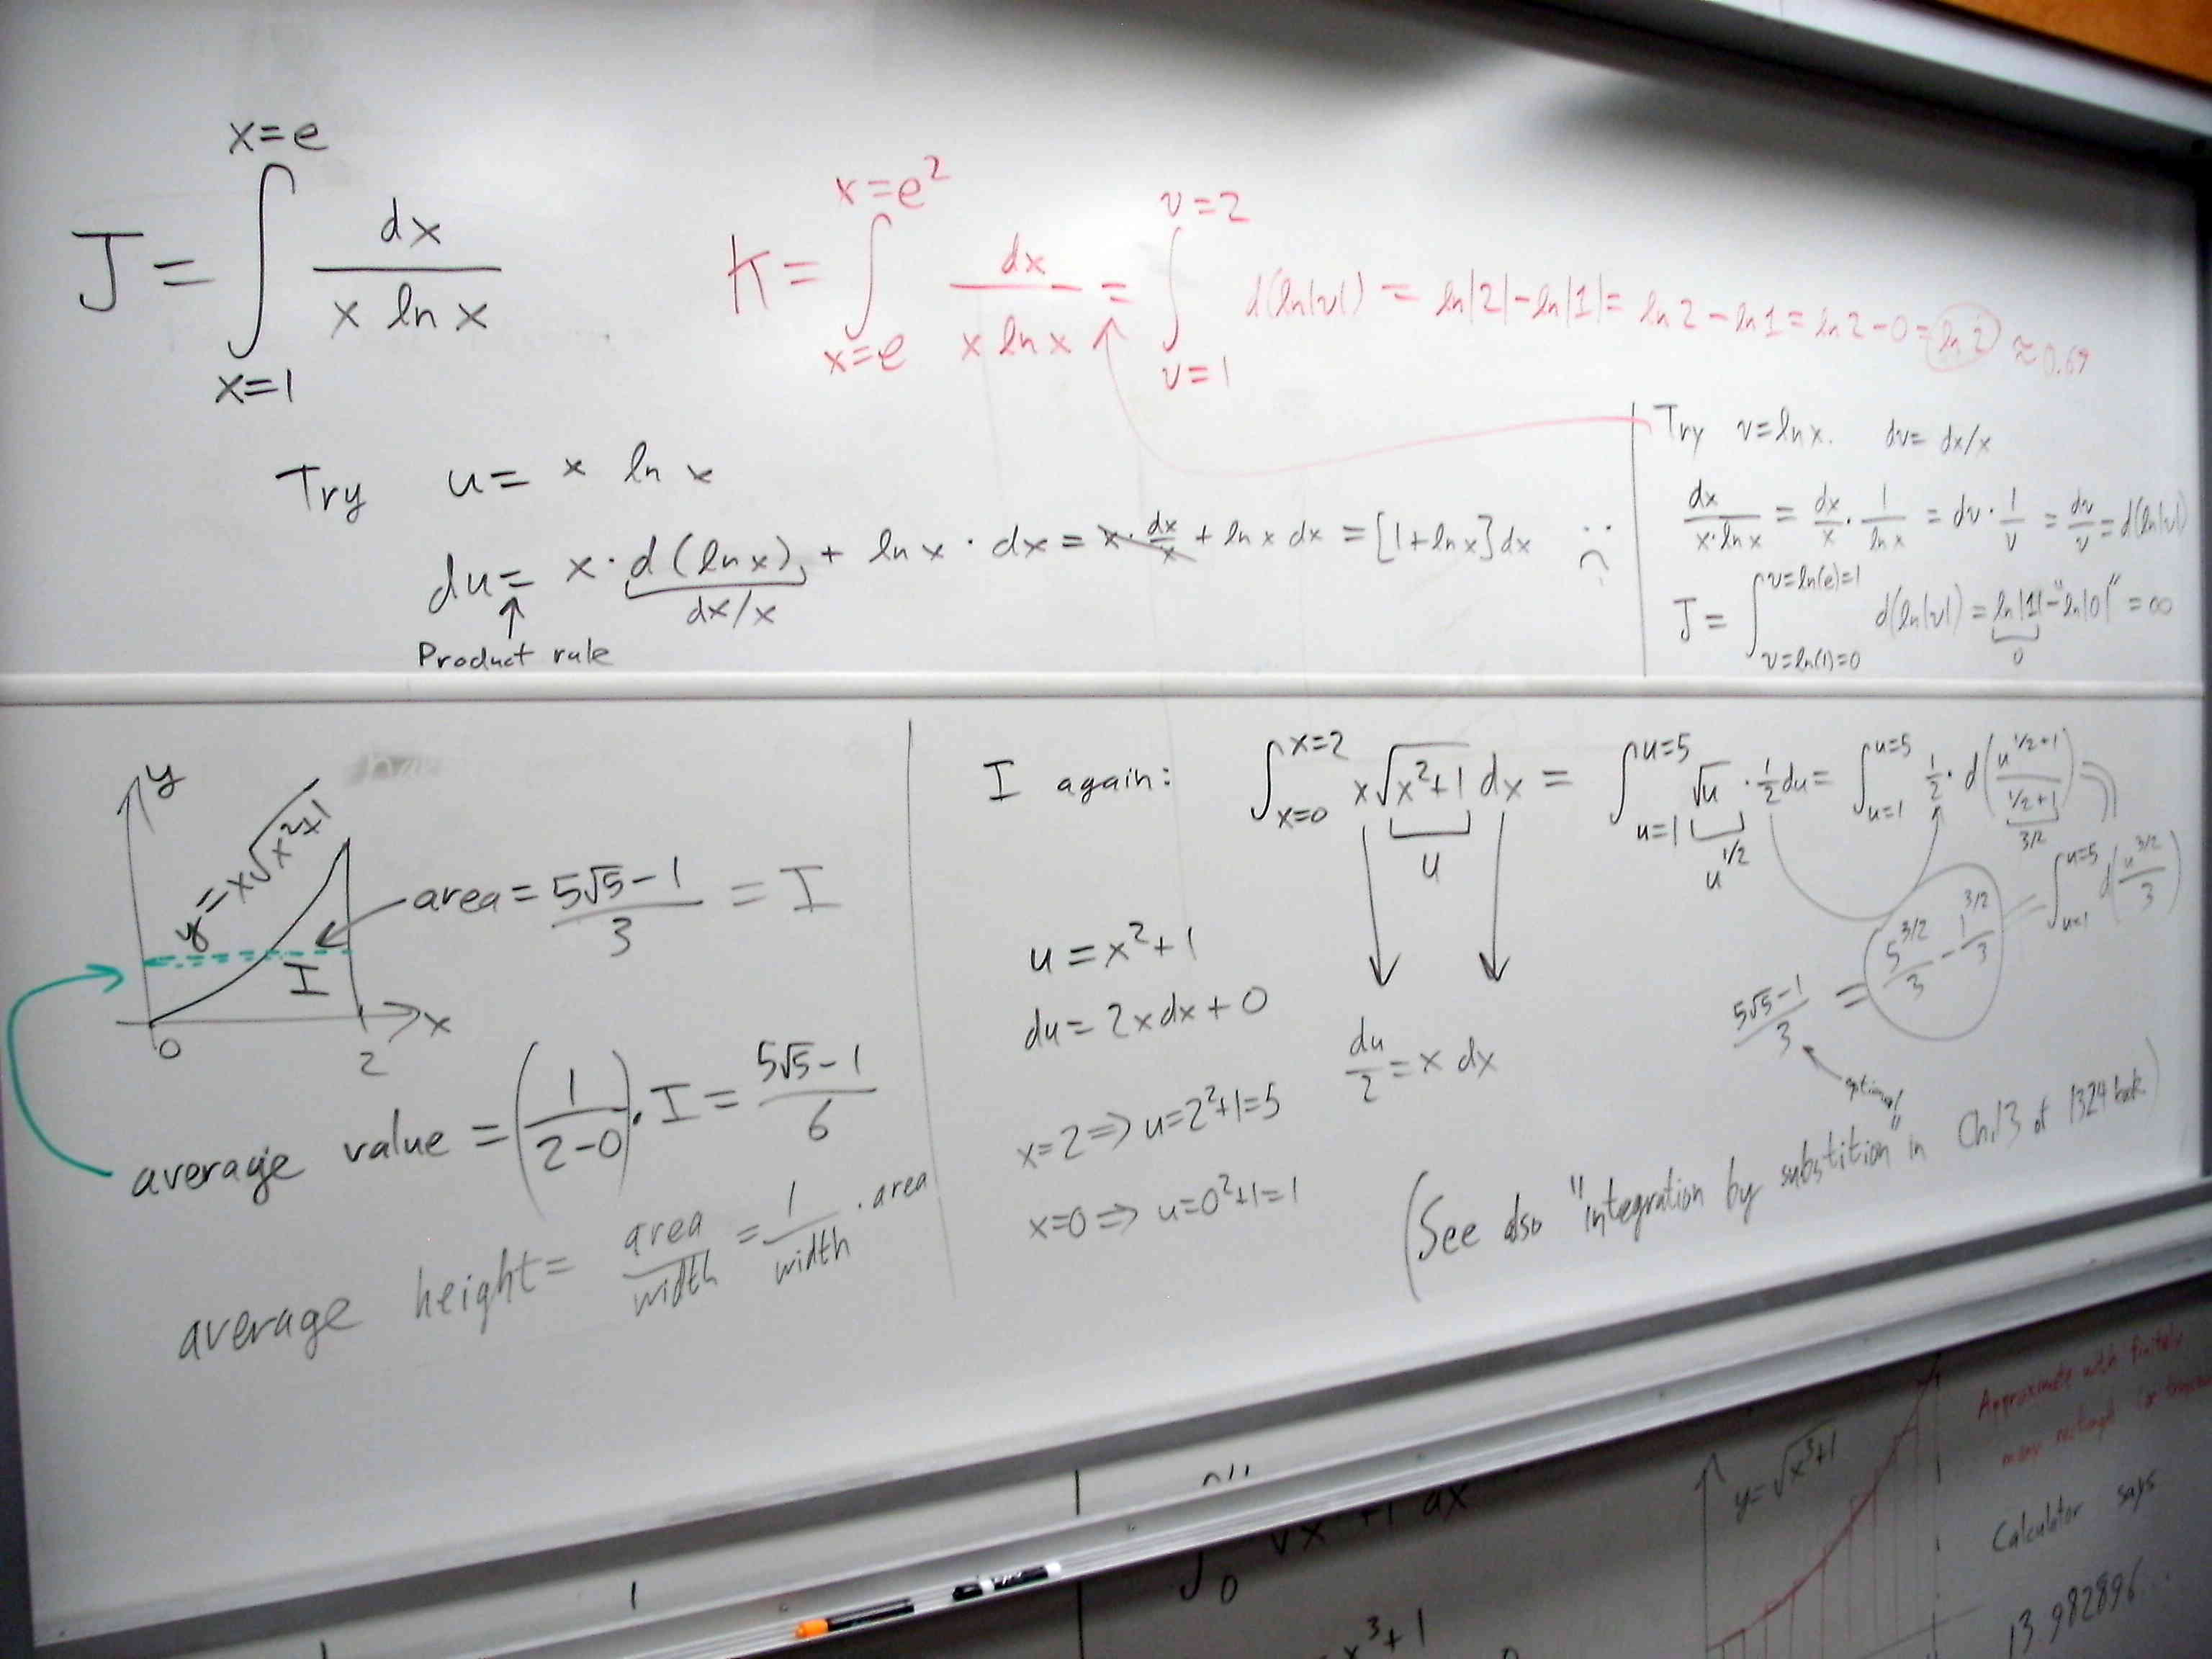 J = ∫_{x=1}^{x=e} dx/(x ln x)
K = ∫_{x=e}^{x=e²} dx/(x ln x) = ∫_{v=1}^{v=2} d(ln|v|) = ln|2| - ln|1| = ln 2 - ln 1 = ln 2 - 0 = ln 2 ≈ 0.69
Try u = x ln x
du = x · d(ln x) + ln x · dx = x · dx/x + ln x dx = [1 + ln x] dx
dx/x
↑
Product rule
Try v = ln x. dv = dx/x
dx/(x·ln x) = dx/x · 1/ln x = dv · 1/v = dv/v = d(ln|v|)
J = ∫_{v=ln(1)=0}^{v=ln(e)=1} d(ln|v|) = ln|1| - "ln|0|" = ∞
0
y
y = x√(x²+1)
area = (5√5 - 1)/3 = I
I
x
0
2
average value = (1/(2-0)) · I = (5√5 - 1)/6
average height = area/width = 1/width · area
I again: ∫_{x=0}^{x=2} x√(x²+1) dx = ∫_{u=1}^{u=5} √u · ½ du = ∫_{u=1}^{u=5} ½ · d(u^{1/2+1}/(1/2+1))
u
u^{1/2}
3/2
= ∫_{u=1}^{u=5} d(u^{3/2}/3)
u = x² + 1
du = 2x dx + 0
du/2 = x dx
x=2 ⇒ u = 2²+1 = 5
x=0 ⇒ u = 0²+1 = 1
(5√5 - 1)/3 = 5^{3/2}/3 - 1^{3/2}/3
optional
(See also "integration by substition" in Ch.13 of 1324 book)
y = √(x³+1)
Approximate with finitely
many
Calculator says
13.982896...
∫_0
dx
x³+1